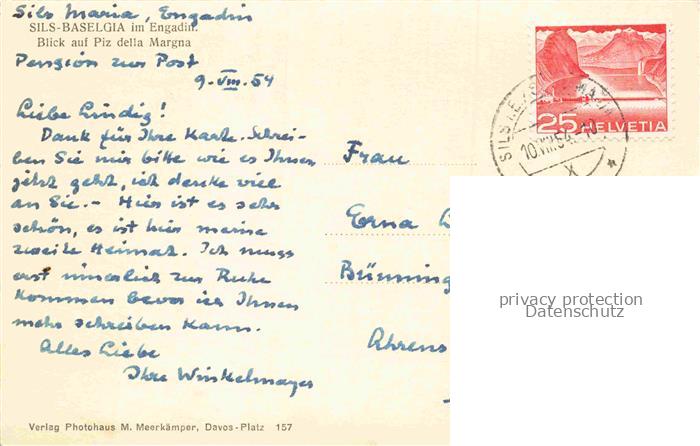 Sils Maria, Engadin
SILS-BASELGIA im Engadin.
Blick auf Piz della Margna
Pension zur Post
9. VIII. 54
Liebe
Dank für Ihre Karte. Schrei-
ben Sie mir bitte wie es Ihnen
jetzt geht, ich denke viel
an Sie. – Hier ist es sehr
schön, es ist hier meine
zweite Heimat. Ich muss
erst innerlich zur Ruhe
kommen bevor ich Ihnen
mehr schreiben kann.
Alles Liebe
Ihre Winkelmayer
Verlag Photohaus M. Meerkämper, Davos-Platz 157
25 HELVETIA
SILS
10.VIII.54.-10
X
Frau
Erna
Bünning
Ahrens
privacy protection
Datenschutz